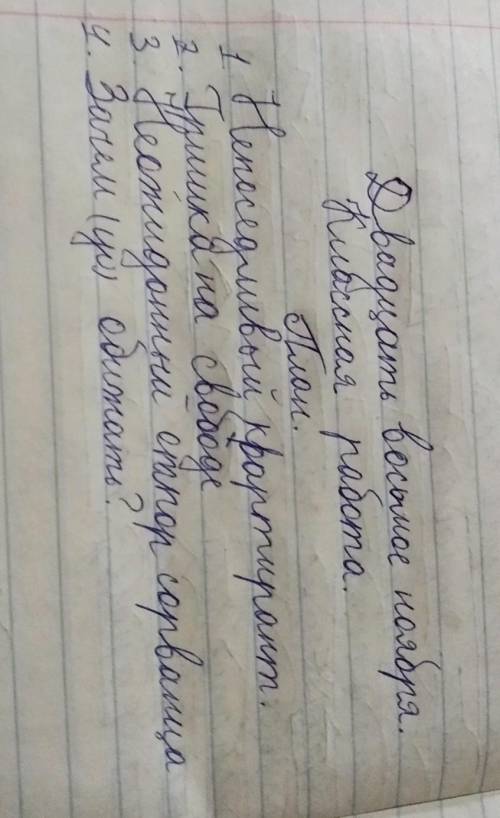 Двадцать восьмое ноября.
Классная работа.
План.
1 Непоседливый квартирант.
2. Тришка на свободе
3 Неожиданный отпор сорванца
4. Зачем обижать?